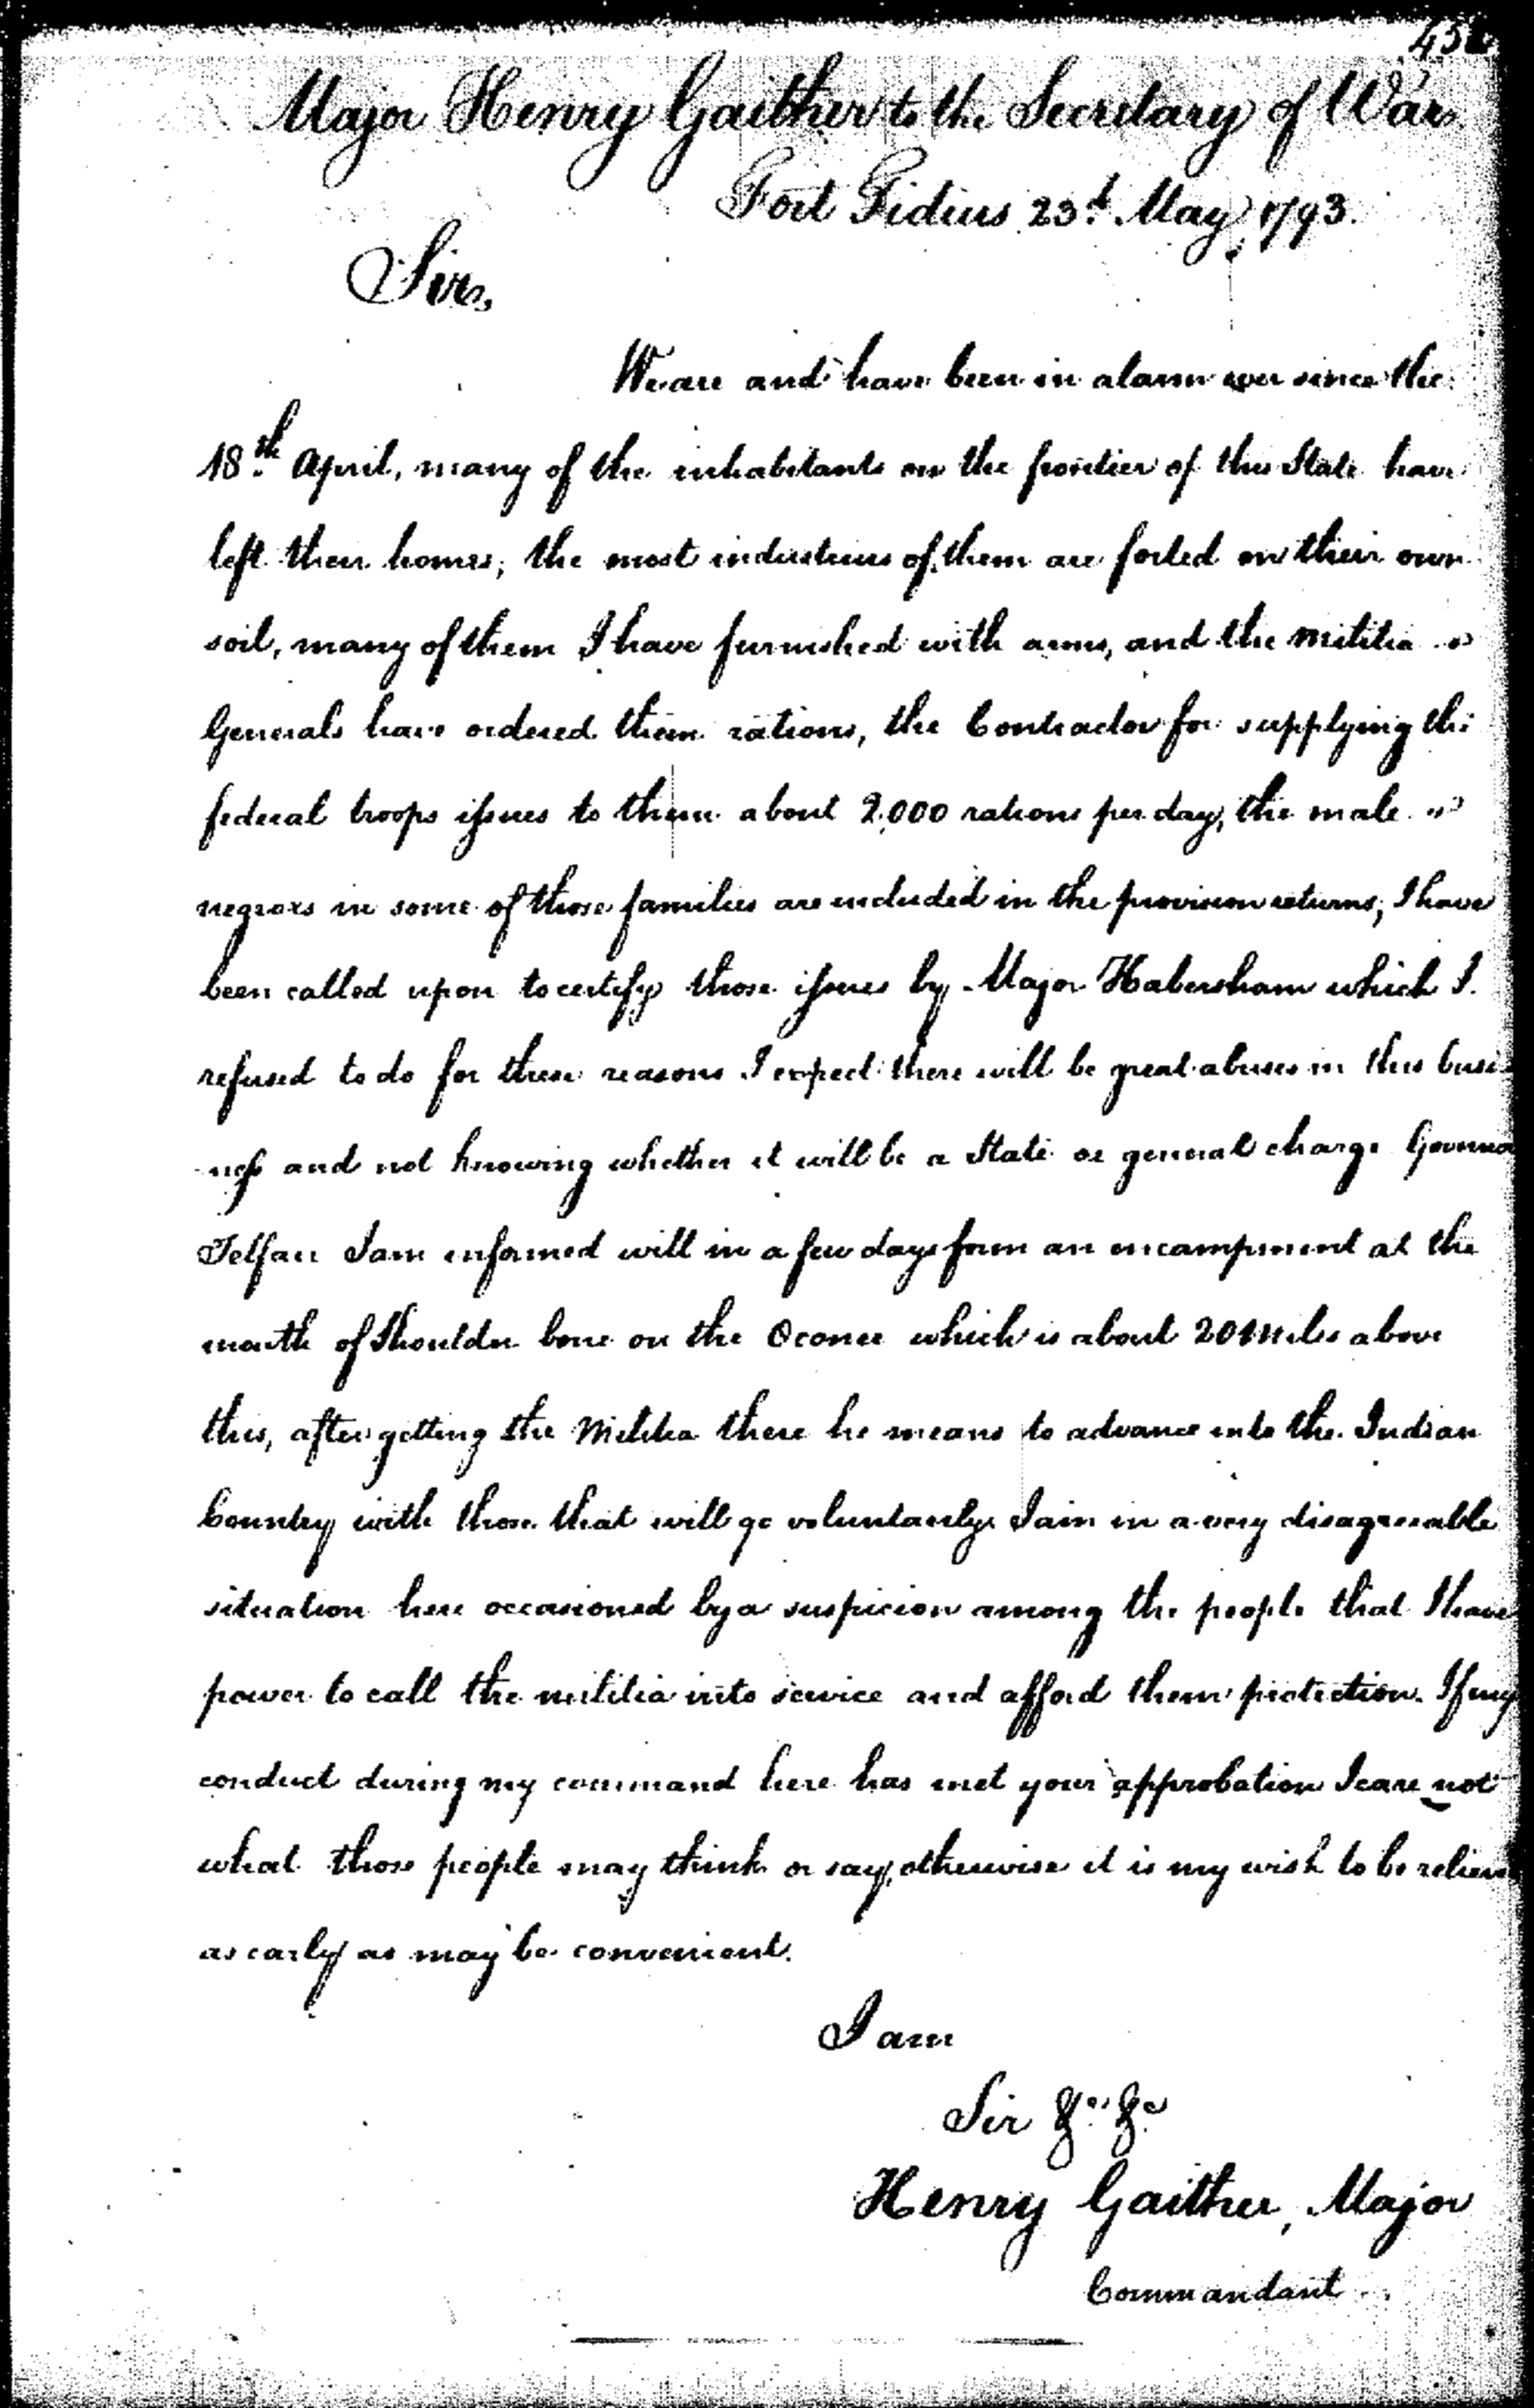 Major Henry Gaither to the Secretary of War
Fort Fidius 23.d May, 1793.
Sir,
We are and have been in alarm ever since the
18.th April, many of the inhabitants on the frontier of this State have
left their homes, the most industrious of them are forted on their own
soil, many of them I have furnished with arms, and the Militia
Generals have ordered them rations, the Contractor for supplying the
federal troops issues to them about 2.000 rations per day, the male
negroes in some of those families are included in the provision returns, I have
been called upon to certify those issues by Major Habersham which I
refused to do for these reasons I expect there will be great abuses in this busi
-ness and not knowing whether it will be a State or general charge Governor
Telfair I am informed will in a few days form an encampment at the
mouth of Shoulder bone on the Oconee which is about 20 Miles above
this, after getting the Militia there he means to advance into the Indian
Country with those that will go voluntarily. I am in a very disagreeable
situation here occasioned by a suspicion among the people that I have
power to call the militia into service and afford them protection. If my
conduct during my command here has met your approbation I care not
what those people may think or say, otherwise it is my wish to be relieved
as early as may be convenient.
I am
Sir &c. &c.
Henry Gaither, Major
Commandant